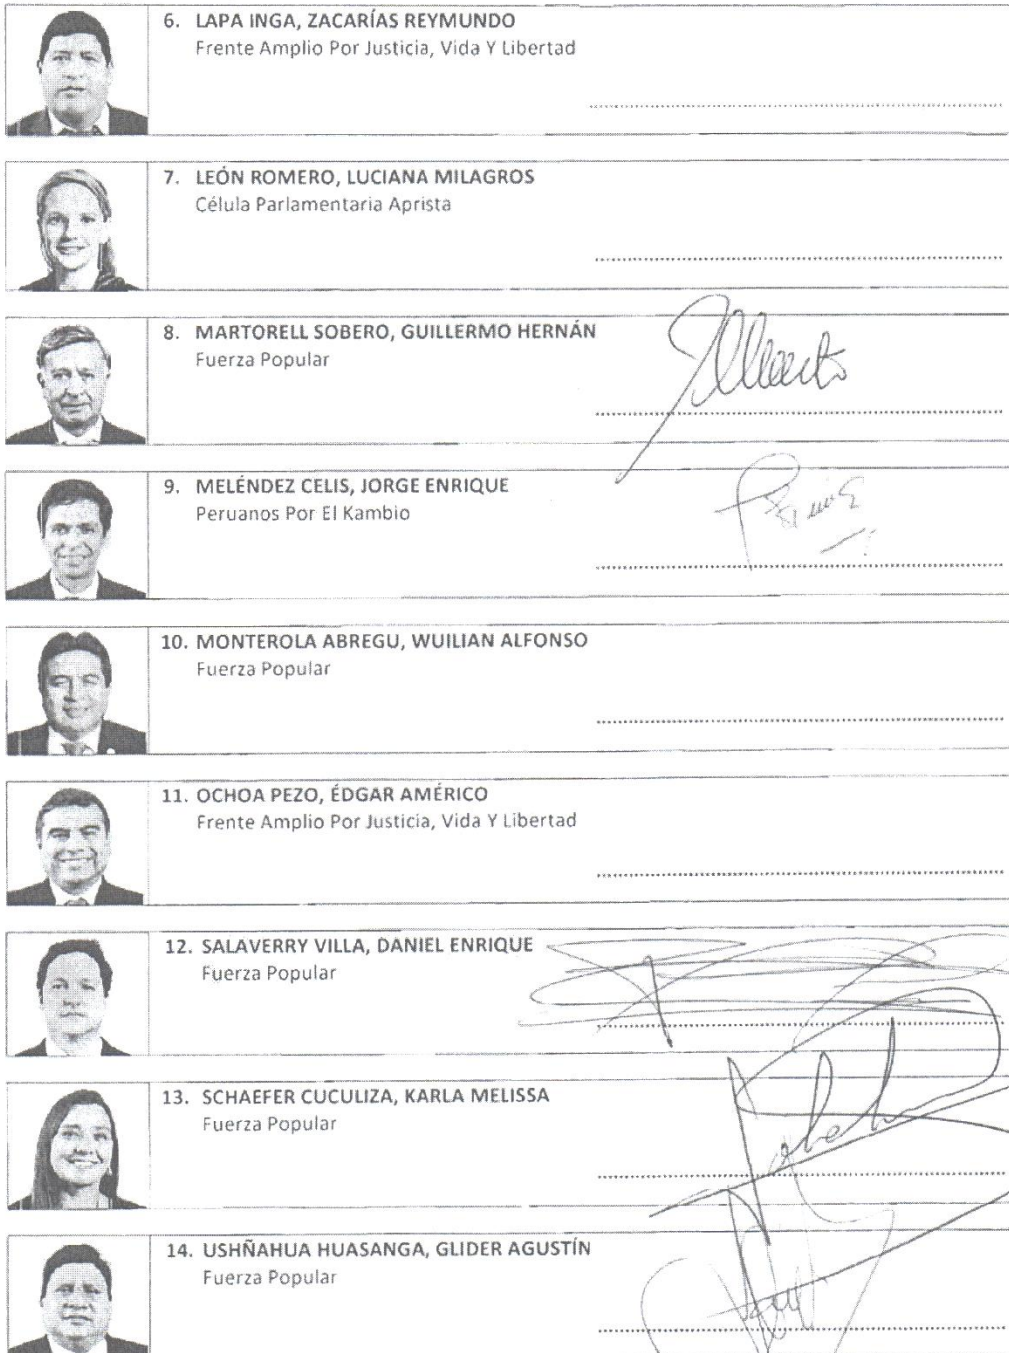 6. LAPA INGA, ZACARÍAS REYMUNDO
Frente Amplio Por Justicia, Vida Y Libertad
7. LEÓN ROMERO, LUCIANA MILAGROS
Célula Parlamentaria Aprista
8. MARTORELL SOBERO, GUILLERMO HERNÁN
Fuerza Popular
9. MELÉNDEZ CELIS, JORGE ENRIQUE
Peruanos Por El Kambio
10. MONTEROLA ABREGU, WUILIAN ALFONSO
Fuerza Popular
11. OCHOA PEZO, ÉDGAR AMÉRICO
Frente Amplio Por Justicia, Vida Y Libertad
12. SALAVERRY VILLA, DANIEL ENRIQUE
Fuerza Popular
13. SCHAEFER CUCULIZA, KARLA MELISSA
Fuerza Popular
14. USHÑAHUA HUASANGA, GLIDER AGUSTÍN
Fuerza Popular